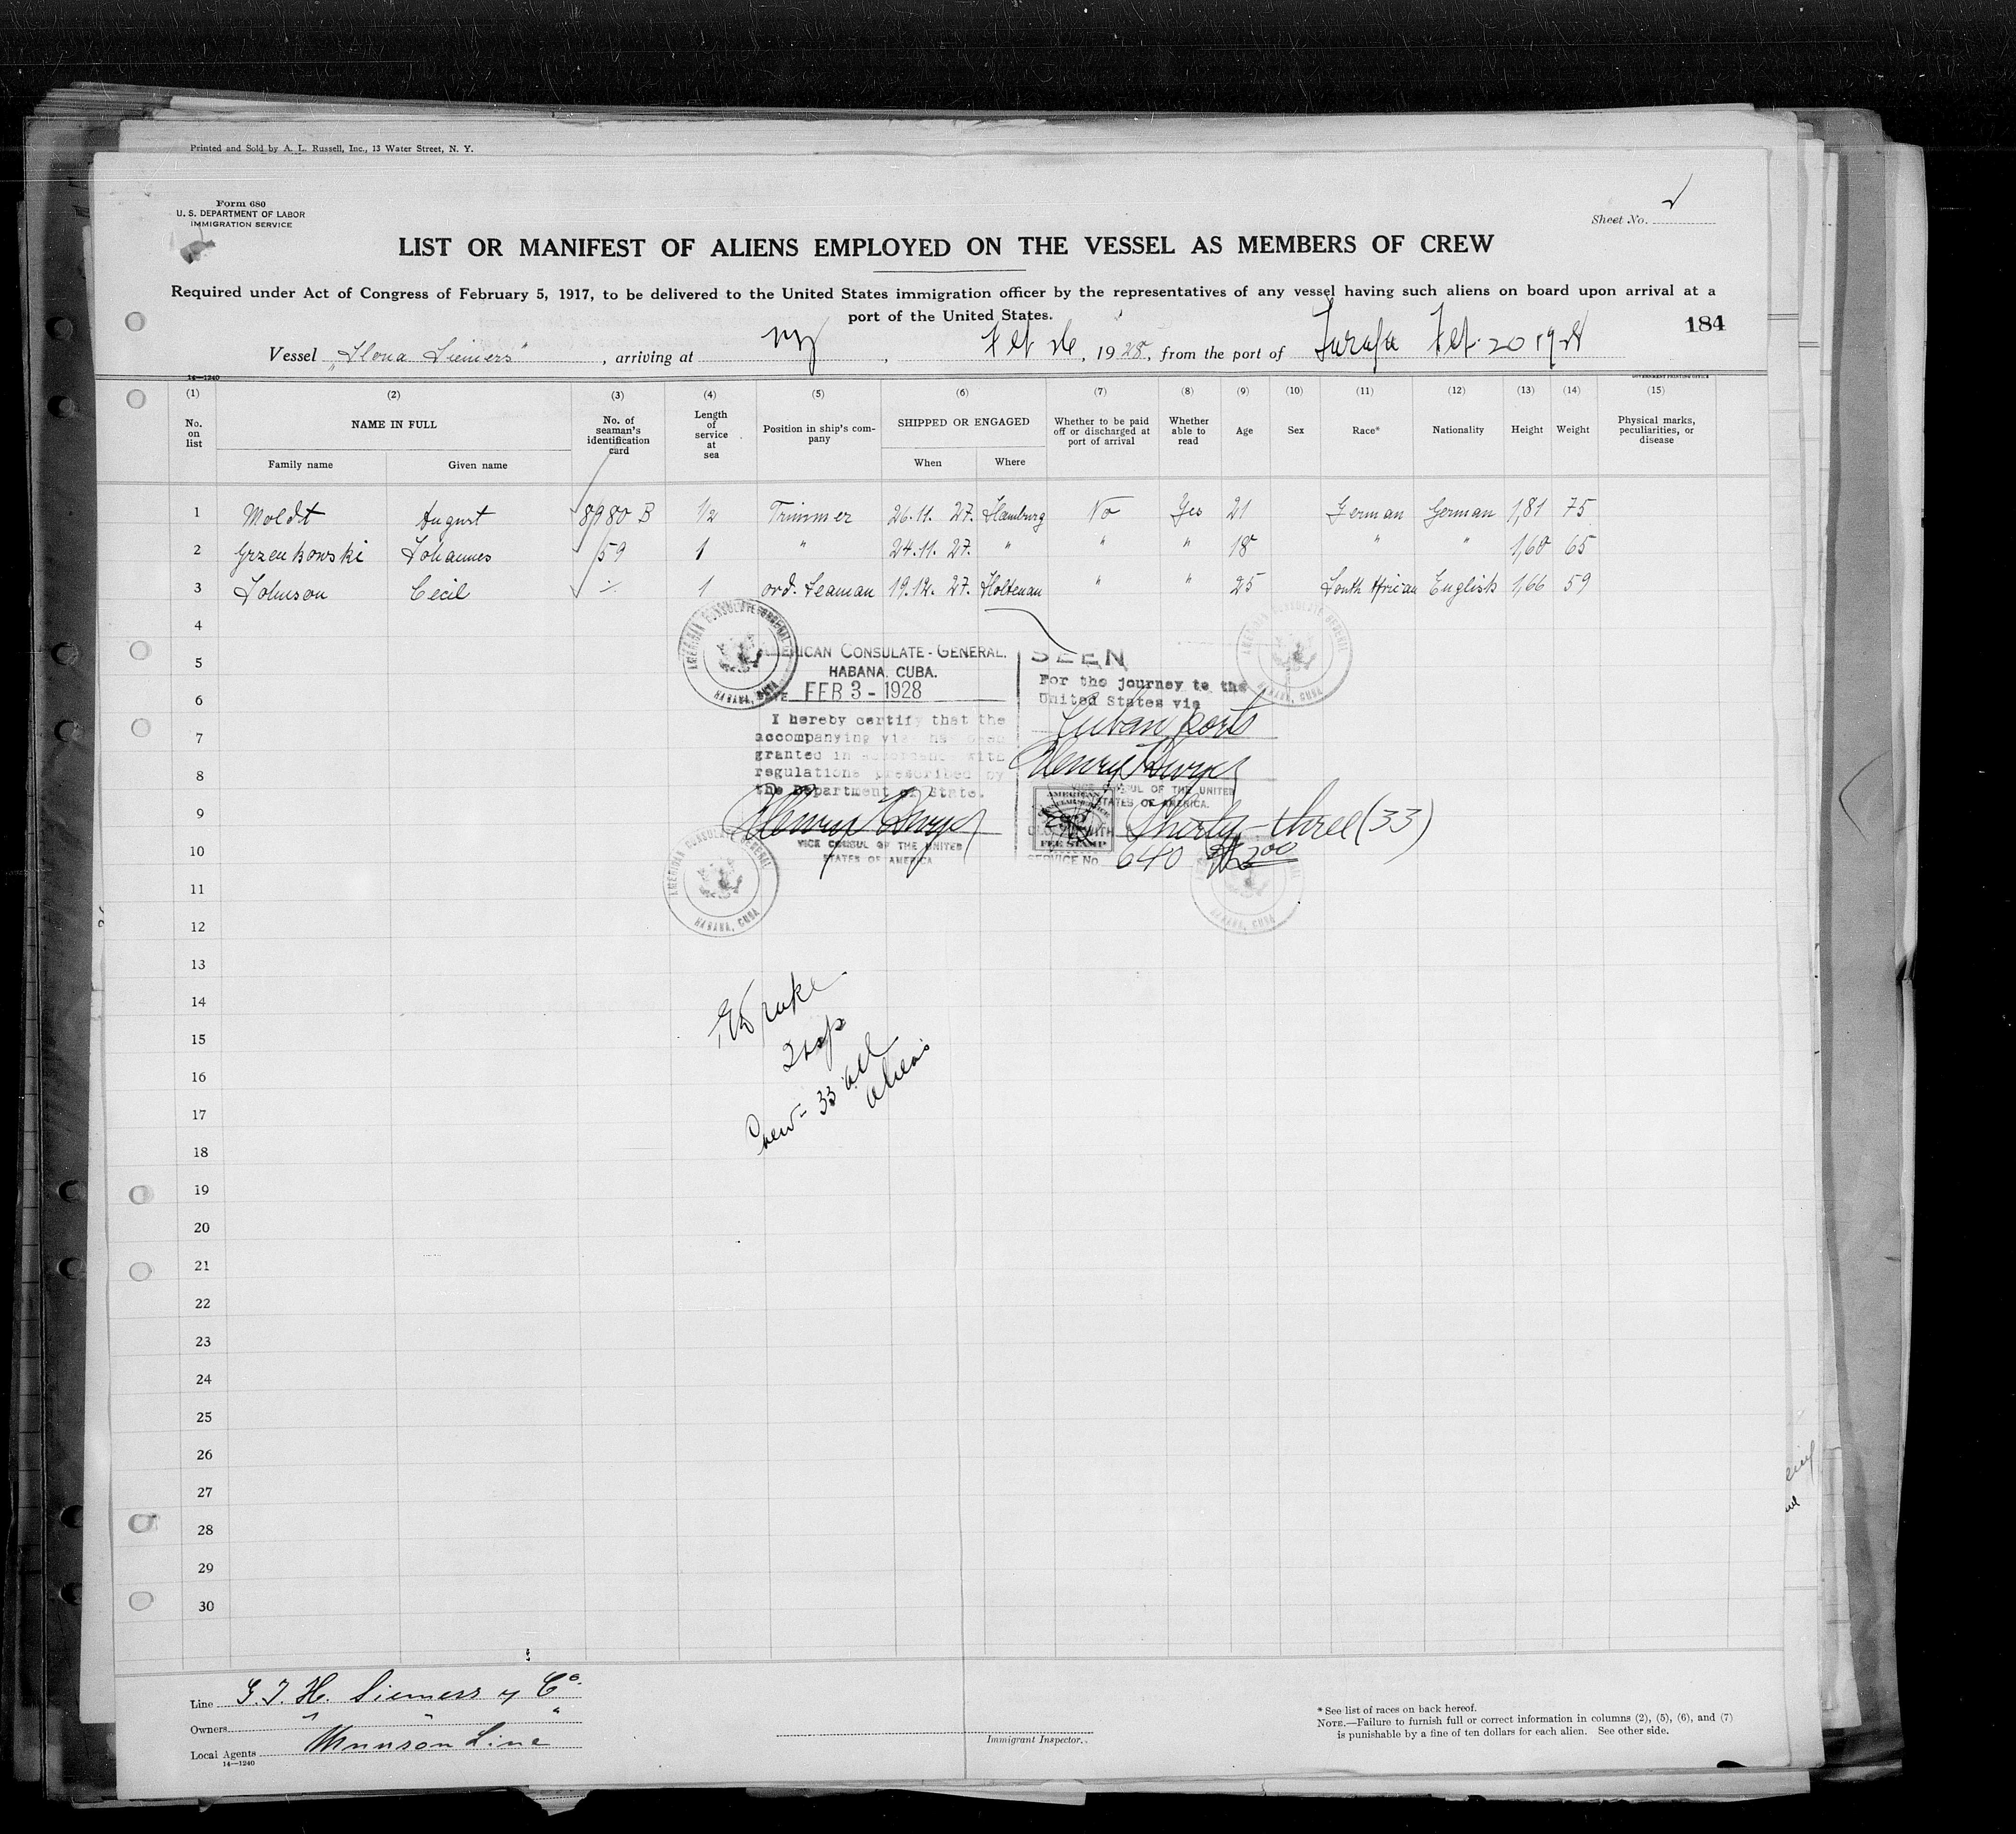 Printed and Sold by A. L. Russell, Inc., 13 Water Street, N. Y.
Form 680
U. S. DEPARTMENT OF LABOR
IMMIGRATION SERVICE
Sheet No.
LIST OR MANIFEST OF ALIENS EMPLOYED ON THE VESSEL AS MEMBERS OF CREW
Required under Act of Congress of February 5, 1917, to be delivered to the United States immigration officer by the representatives of any vessel having such aliens on board upon arrival at a
port of the United States.
184
Vessel "Ilona Siemers", arriving at NY, Feb 26, 1928, from the port of Tarafa Feb. 20 1928
14—1240 GOVERNMENT PRINTING OFFICE
(1) (2) (3) (4) (5) (6) (7) (8) (9) (10) (11) (12) (13) (14) (15)
No. on list NAME IN FULL No. of seaman's identification card Length of service at sea Position in ship's company SHIPPED OR ENGAGED Whether to be paid off or discharged at port of arrival Whether able to read Age Sex Race* Nationality Height Weight Physical marks, peculiarities, or disease
Family name Given name When Where
1 Moldt August 8980 B 1/2 Trimmer 26.11. 27. Hamburg No Yes 21 German German 1,81 75
2 Grzenkowski Johannes 59 1 " 24.11. 27. " " " 18 " " 1,60 65
3 Johnson Cecil ./. 1 ord. Seaman 19.12. 27. Holtenau " " 25 South African English 1,66 59
4
5
6
7
8
9
10
11
12
13
14
15
16
17
18
19
20
21
22
23
24
25
26
27
28
29
30
AMERICAN CONSULATE GENERAL
HABANA, CUBA
AMERICAN CONSULATE-GENERAL.
HABANA, CUBA.
DATE FEB 3 - 1928
I hereby certify that the
accompanying visa has been
granted in accordance with
regulations prescribed by
the Department of State.
VICE CONSUL OF THE UNITED
STATES OF AMERICA
AMERICAN CONSULATE GENERAL
HABANA, CUBA
SEEN
For the journey to the
United States via
Cuban ports
VICE CONSUL OF THE UNITED
STATES OF AMERICA.
AMERICAN
FEE STAMP
Thirty-three (33)
SERVICE No. 640 $2.00
AMERICAN CONSULATE GENERAL
HABANA, CUBA
AMERICAN CONSULATE GENERAL
HABANA, CUBA
Insp
Crew - 33 all
aliens
Line G. J. H. Siemers & Co.
Owners " " "
Local Agents Munson Line
14—1240
Immigrant Inspector.
* See list of races on back hereof.
NOTE.—Failure to furnish full or correct information in columns (2), (5), (6), and (7)
is punishable by a fine of ten dollars for each alien. See other side.